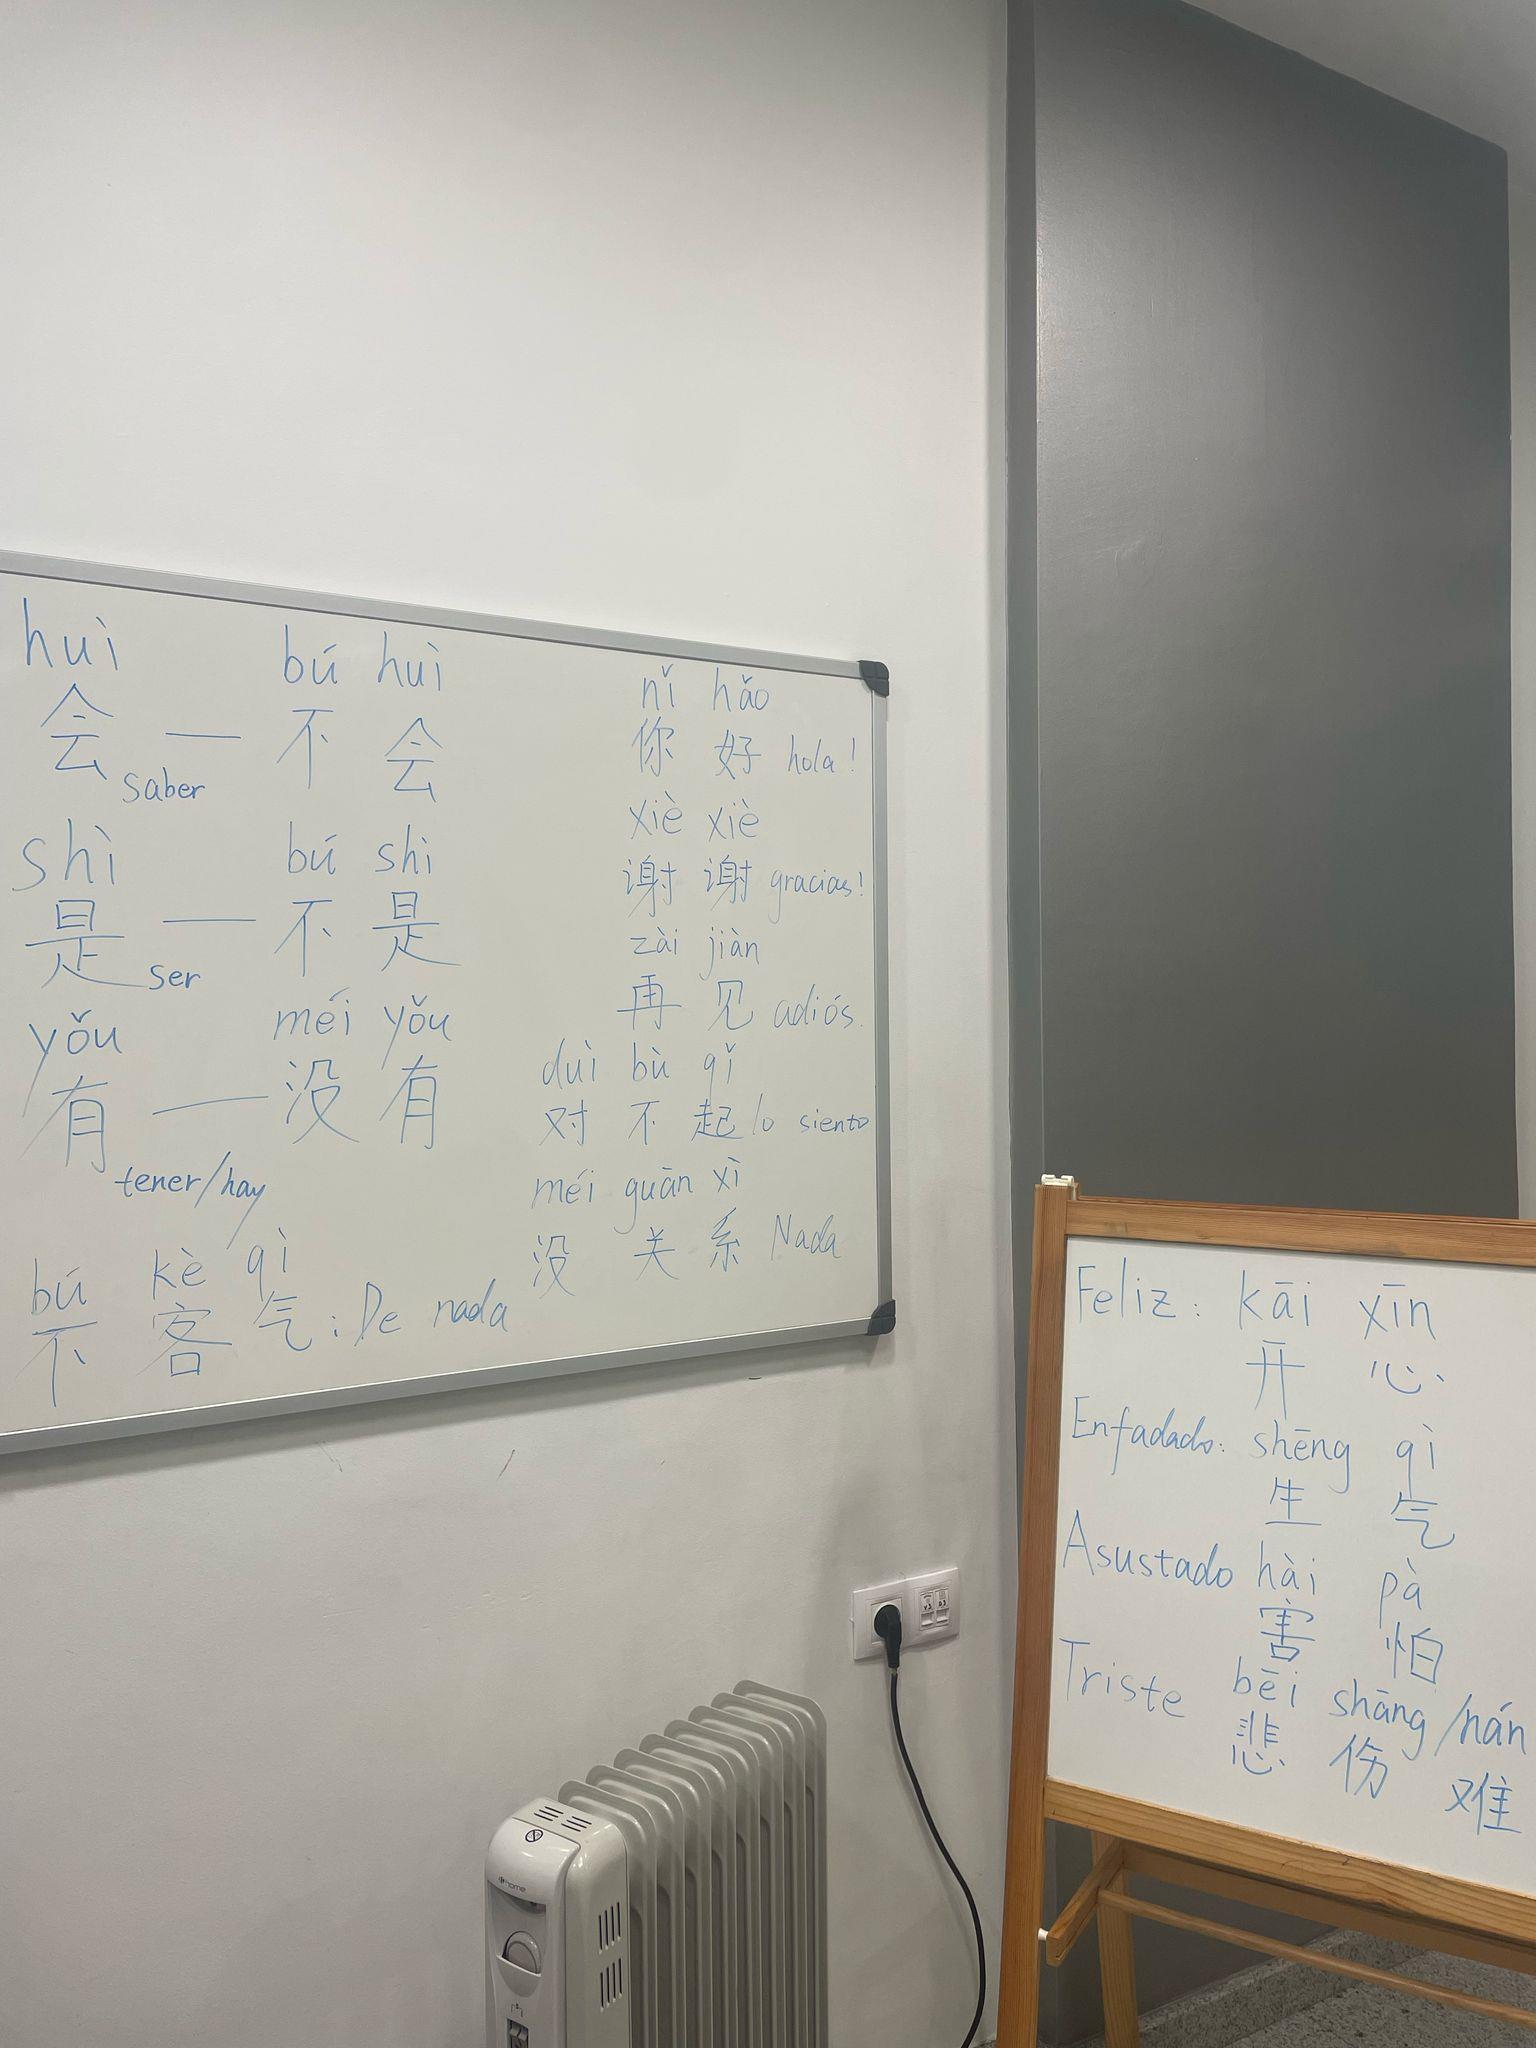 huì bú huì
会 — 不 会
saber
shì bú shì
是 — 不 是
ser
yǒu méi yǒu
有 — 没 有
tener/hay
bú kè qì
不 客 气 : De nada
nǐ hǎo
你 好 hola!
xiè xiè
谢 谢 gracias!
zài jiàn
再 见 adiós.
duì bù qǐ
对 不 起 lo siento
méi guān xì
没 关 系 Nada
Feliz: kāi xīn
开 心
Enfadado: shēng qì
生 气
Asustado hài pà
害 怕
Triste bēi shāng /nán
悲 伤 难
home